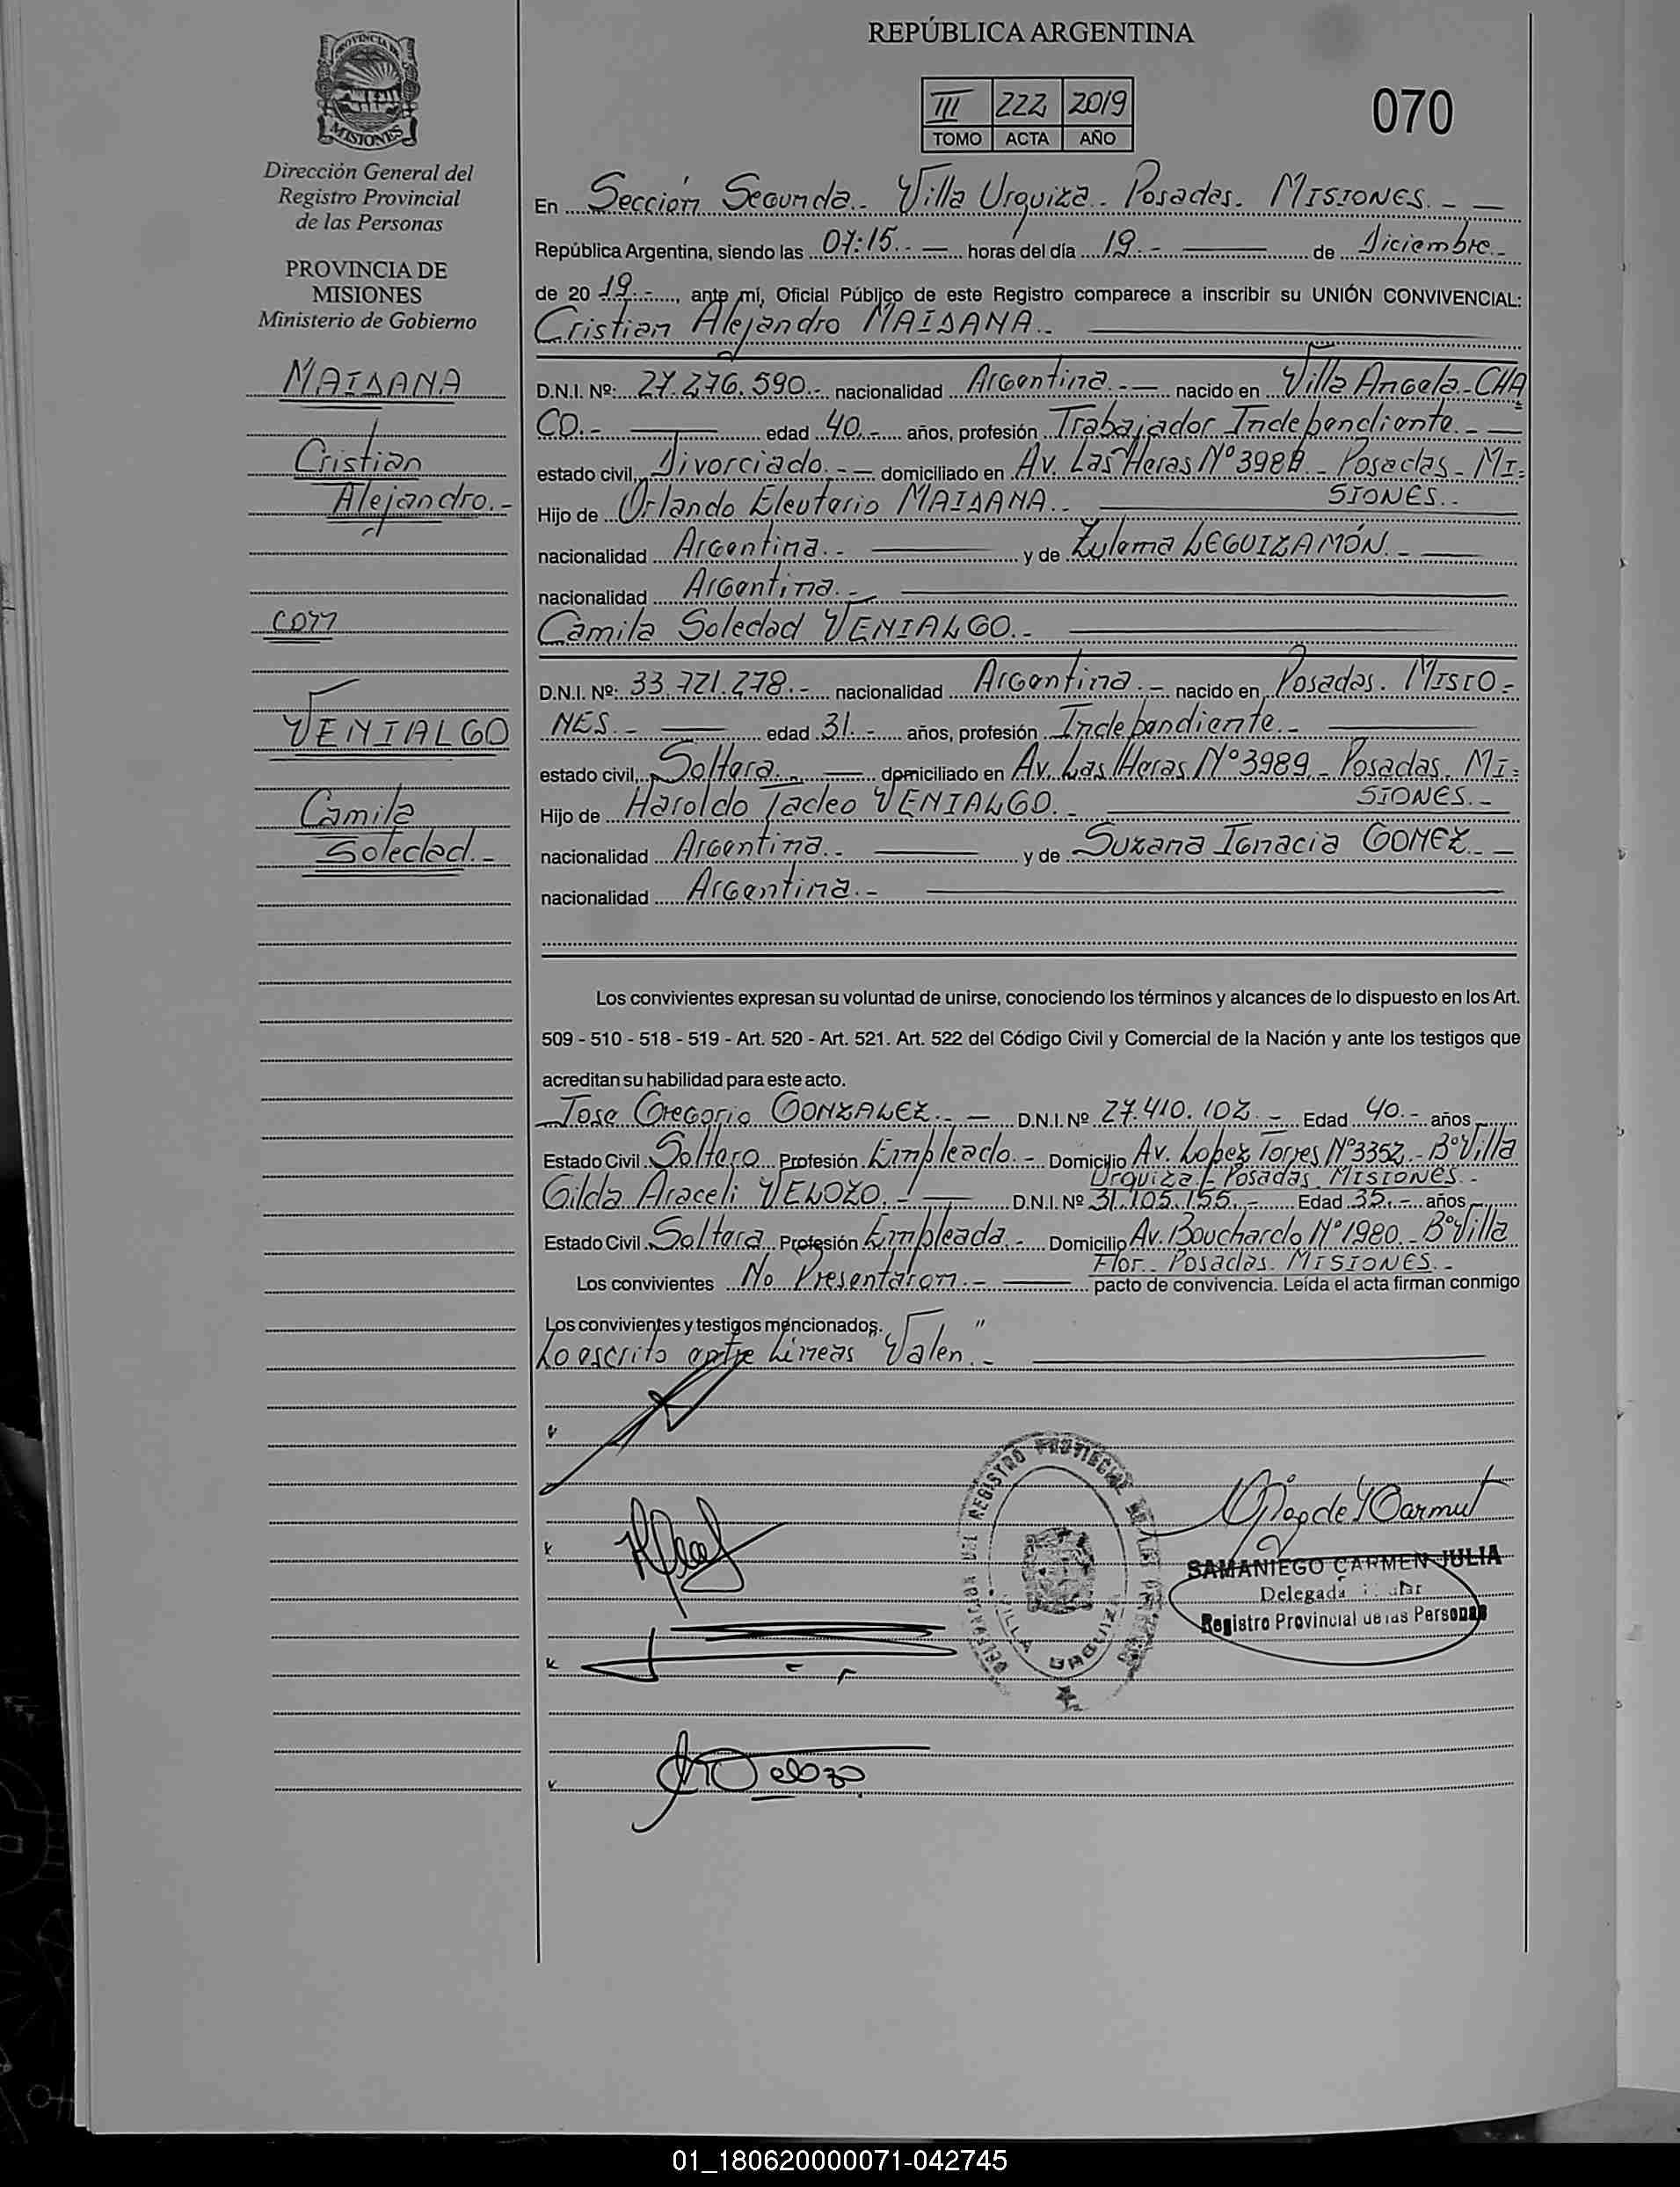 REPÚBLICA ARGENTINA
PROVINCIA DE
MISIONES
III 222 2019
TOMO ACTA AÑO
070
Dirección General del
Registro Provincial
de las Personas
PROVINCIA DE
MISIONES
Ministerio de Gobierno
MAIDANA
Cristian
Alejandro.-
CON
VENIALGO
Camila
Soledad.-
En Sección Segunda.- Villa Urquiza.- Posadas.- MISIONES.- —
República Argentina, siendo las 07:15.- — horas del día 19.- — de Diciembre.-
de 20 19.-, ante mí, Oficial Público de este Registro comparece a inscribir su UNIÓN CONVIVENCIAL:
Cristian Alejandro MAIDANA.- —
D.N.I. Nº: 27.276.590.- nacionalidad Argentina.- — nacido en Villa Angela-CHA
CO.- — edad 40.- años, profesión Trabajador Independiente.- —
estado civil, Divorciado.- — domiciliado en Av. Las Heras Nº 3989.- Posadas- MI-
SIONES.-
Hijo de Orlando Eleuterio MAIDANA.- —
nacionalidad Argentina.- — y de Zulema LEGUIZAMÓN.- —
nacionalidad Argentina.- —
Camila Soledad VENIALGO.- —
D.N.I. Nº: 33.721.278.- nacionalidad Argentina.- — nacido en Posadas. MISIO-
NES.- — edad 31.- años, profesión Independiente.- —
estado civil, Soltera.- — domiciliado en Av. Las Heras Nº 3989.- Posadas. MI-
SIONES.-
Hijo de Haroldo Tadeo VENIALGO.- —
nacionalidad Argentina.- — y de Suzana Ignacia GOMEZ.- —
nacionalidad Argentina.- —
Los convivientes expresan su voluntad de unirse, conociendo los términos y alcances de lo dispuesto en los Art.
509 - 510 - 518 - 519 - Art. 520 - Art. 521. Art. 522 del Código Civil y Comercial de la Nación y ante los testigos que
acreditan su habilidad para este acto.
Jose Gregorio GONZALEZ.- — D.N.I. Nº 27.410.102.- Edad 40.- años
Estado Civil Soltero Profesión Empleado.- Domicilio Av. Lopez Torres Nº 3352.- Bº Villa
Urquiza - Posadas. MISIONES.-
Gilda Araceli VELOZO.- — D.N.I. Nº 31.105.155.- Edad 35.- años
Estado Civil Soltera Profesión Empleada.- Domicilio Av. Bouchardo Nº 1980.- Bº Villa
Flor.- Posadas. MISIONES.-
Los convivientes No Presentaron.- — pacto de convivencia. Leída el acta firman conmigo
Los convivientes y testigos mencionados.
Lo escrito entre Lineas "Valen".- —
DELEGACION DEL REGISTRO PROVINCIAL DE LAS PERSONAS
VILLA URQUIZA
SAMANIEGO CARMEN JULIA
Delegada
Registro Provincial de las Personas
01_180620000071-042745